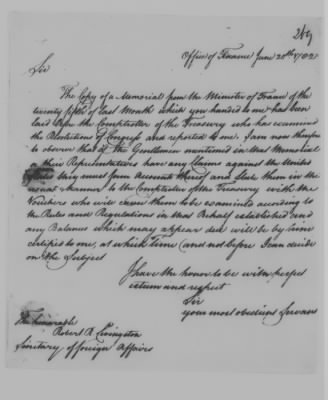 269
Office of Finance June 20th 1782
Sir
The Copy of a Memorial from the Minister of France of the
twenty fifth of last Month which you handed to me has been
laid before the Comptroller of the Treasury who has examined
the Resolutions of Congress and reported to me. I am now therefore
to observe that if the Gentlemen mentioned in that Memorial
or their Representatives have any Claims against the United
States they must form Accounts thereof and State them in the
usual manner to the Comptroller of the Treasury with the
Vouchers who will cause them to be examined according to
the Rules and Regulations in that Behalf established and
any Balances which may appear due will be by him
certified to me, at which time (and not before) I can decide
on the Subject
I have the honor to be with perfect
esteem and respect
Sir
your most obedient Servant
The honorable
Robert R. Livingston
Secretary of foreign Affairs